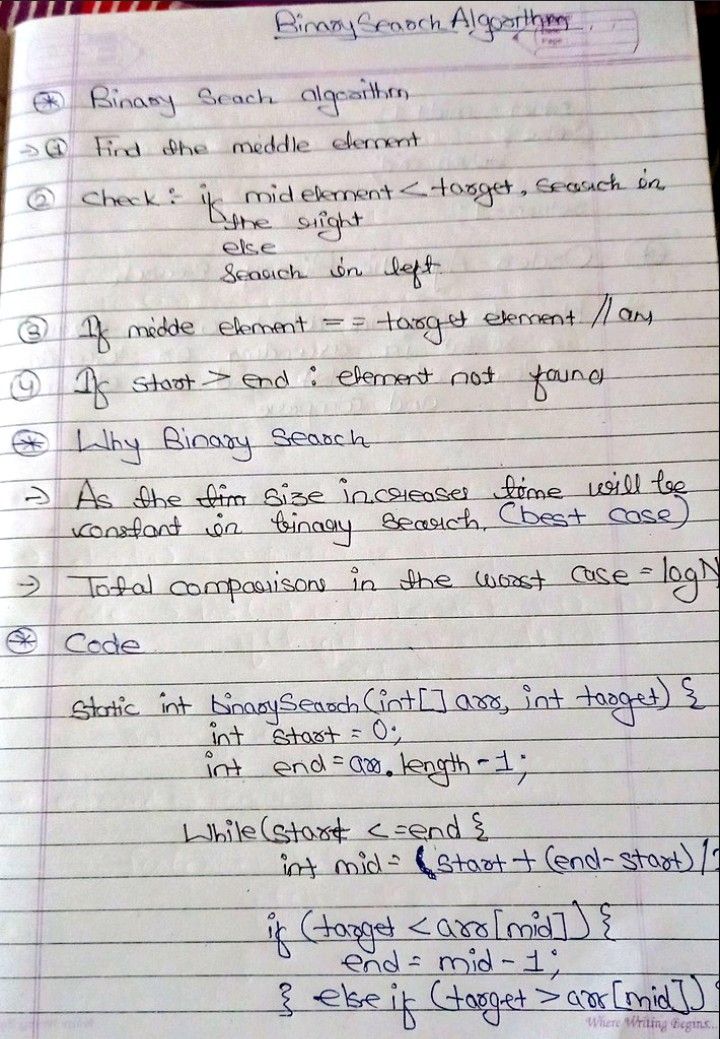 Binary Search Algorithm
* Binary Seach algorithm
→ ① Find the meddle element
② Check : if mid element < target, search in
the right
else
Search in left
③ If midde element == target element // ans
④ If start > end : element not found
* Why Binary Search
→ As the size increases time will be
constant in binary search. (best case)
→ Total comparisons in the worst case = logN
* Code
Static int binarySearch(int[] arr, int target) {
int start = 0;
int end = arr.length - 1;
While(start <= end {
int mid = (start + (end-start)/2
if (target < arr[mid]) {
end = mid - 1;
} else if (target > arr[mid]) {
Where Writing Begins...